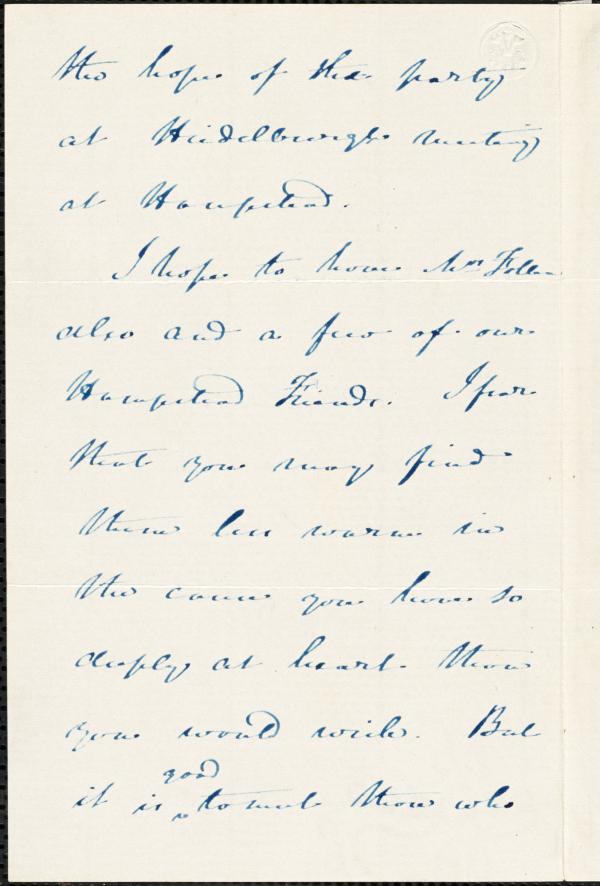 the hope of the party
at Heidelburgh meeting
at Hampstead.
I hope to have Mrs Follen
also and a few of our
Hampstead Friends. I fear
that you may find
them less warm in
the cause you have so
deeply at heart than
you would wish. But
good
it is ^ to meet those who